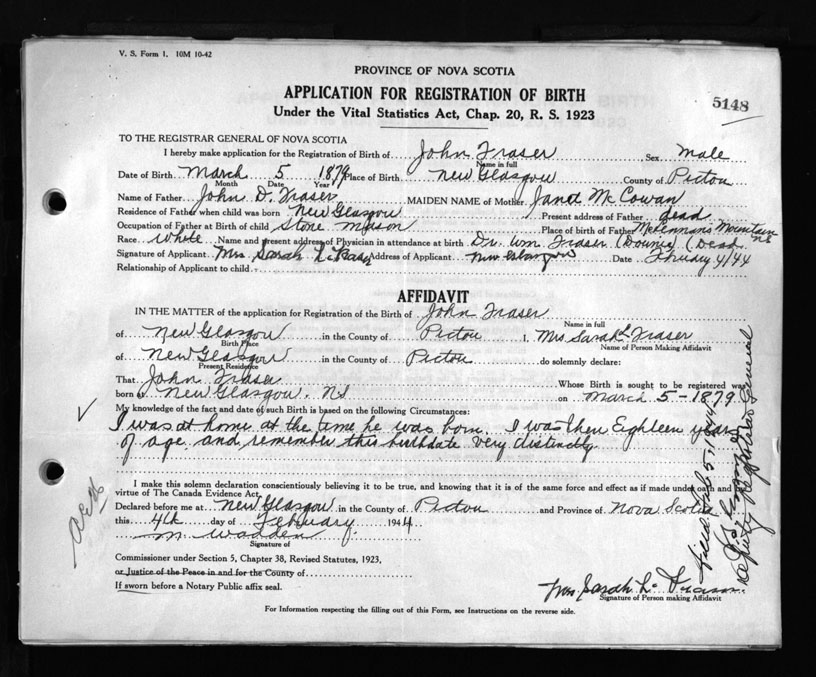 V. S. Form 1. 10M 10-42
PROVINCE OF NOVA SCOTIA
APPLICATION FOR REGISTRATION OF BIRTH
5148
Under the Vital Statistics Act, Chap. 20, R. S. 1923
TO THE REGISTRAR GENERAL OF NOVA SCOTIA
I hereby make application for the Registration of Birth of John Fraser Sex Male
Name in full
Date of Birth March 5 1879 Place of Birth New Glasgow County of Pictou
Month Date Year
Name of Father John D. Fraser MAIDEN NAME of Mother Janet McCowan
Residence of Father when child was born New Glasgow Present address of Father dead
Occupation of Father at Birth of child Stone Mason Place of birth of Father McLennans Mountain NS
Race White Name and present address of Physician in attendance at birth Dr. Wm Fraser (Downie) (Dead
Signature of Applicant Mrs Sarah L. Fraser Address of Applicant New Glasgow Date February 4/44
Relationship of Applicant to child
AFFIDAVIT
IN THE MATTER of the application for Registration of the Birth of John Fraser
Name in full
of New Glasgow in the County of Pictou I, Mrs Sarah L Fraser
Birth Place Name of Person Making Affidavit
of New Glasgow in the County of Pictou do solemnly declare:
Present Residence
That John Fraser Whose Birth is sought to be registered was
born at New Glasgow. NS on March 5-1879
My knowledge of the fact and date of such Birth is based on the following Circumstances:
I was at home at the time he was born. I was then Eighteen years
of age and remember this birthdate very distinctly
I make this solemn declaration conscientiously believing it to be true, and knowing that it is of the same force and effect as if made under oath and by
virtue of The Canada Evidence Act.
Declared before me at New Glasgow in the County of Pictou and Province of Nova Scotia
this 4th day of February 1944
Signature of
Commissioner under Section 5, Chapter 38, Revised Statutes, 1923,
or Justice of the Peace in and for the County of
If sworn before a Notary Public affix seal.
Mrs. Sarah L. Fraser
Signature of Person making Affidavit
For Information respecting the filling out of this Form, see Instructions on the reverse side.
Deputy Registrar General